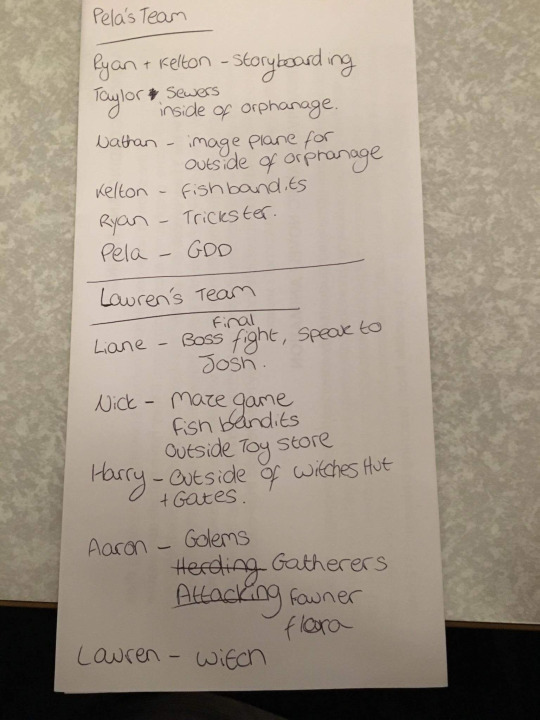 Pela's Team
Ryan + Kelton - Storyboarding
Taylor Sewers
inside of orphanage.
Nathan - image plane for
outside of orphanage
Kelton - fishbandits
Ryan - Trickster.
Pela - GDD
Lauren's Team
Final
Liane - Boss fight, speak to
Josh.
Nick - Maze game
fish bandits
Outside Toy store
Harry - Outside of witches Hut
+ Gates.
Aaron - Golems
Herding Gatherers
Attacking Fawner
flora
Lauren - witch